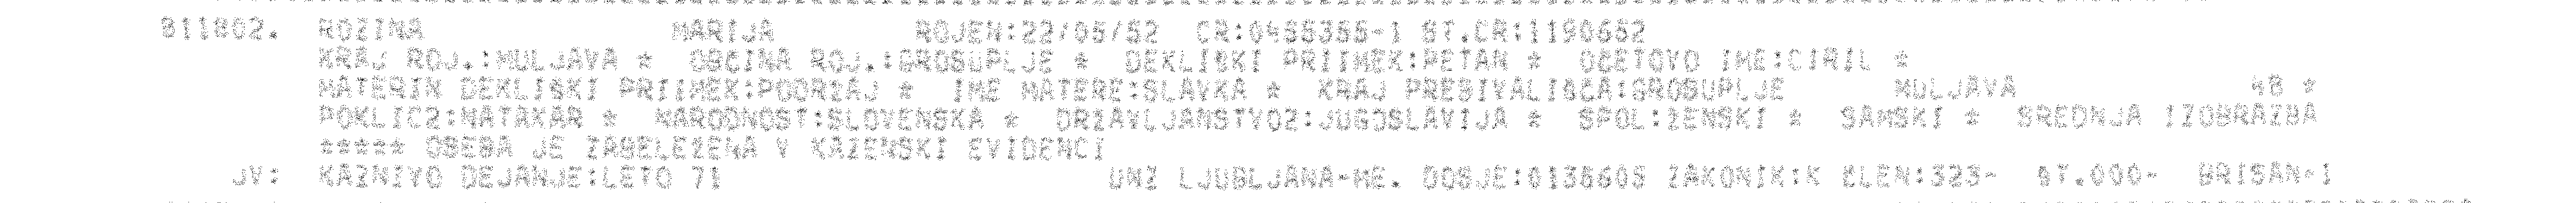 811802. ROZINA MARIJA ROJEN:22/05/52 CR:0455355-1 ST.CR:1190652
KRAJ ROJ.:MULJAVA * OBČINA ROJ.:GROSUPLJE * DEKLIŠKI PRIIMEK:PETAN * OČETOVO IME:CIRIL *
MATERIN DEKLIŠKI PRIIMEK:PODRŽAJ * IME MATERE:SLAVKA * KRAJ PREBIVALIŠČA:GROSUPLJE MULJAVA 4B *
POKLIC2:NATAKAR * NARODNOST:SLOVENSKA * DRŽAVLJANSTVO2:JUGOSLAVIJA * SPOL:ŽENSKI * SAMSKI * SREDNJA IZOBRAZBA
***** OSEBA JE ZABELEŽENA V KAZENSKI EVIDENCI
JV: KAZNIVO DEJANJE:LETO 71 UNZ LJUBLJANA-ME. DOSJE:0136605 ZAKONIK:K ČLEN:323- ŠT.000- BRISAN-1